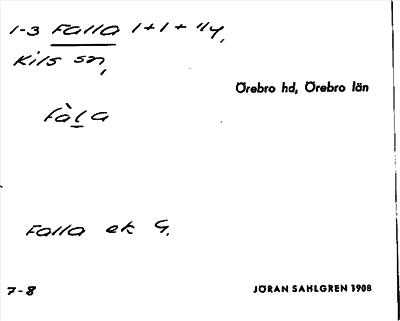 1-3 Falla 1+1+ 1/4,
Kils sn,
Örebro hd, Örebro län
fàḻa
Falla ek G.
7-8 JÖRAN SAHLGREN 1908